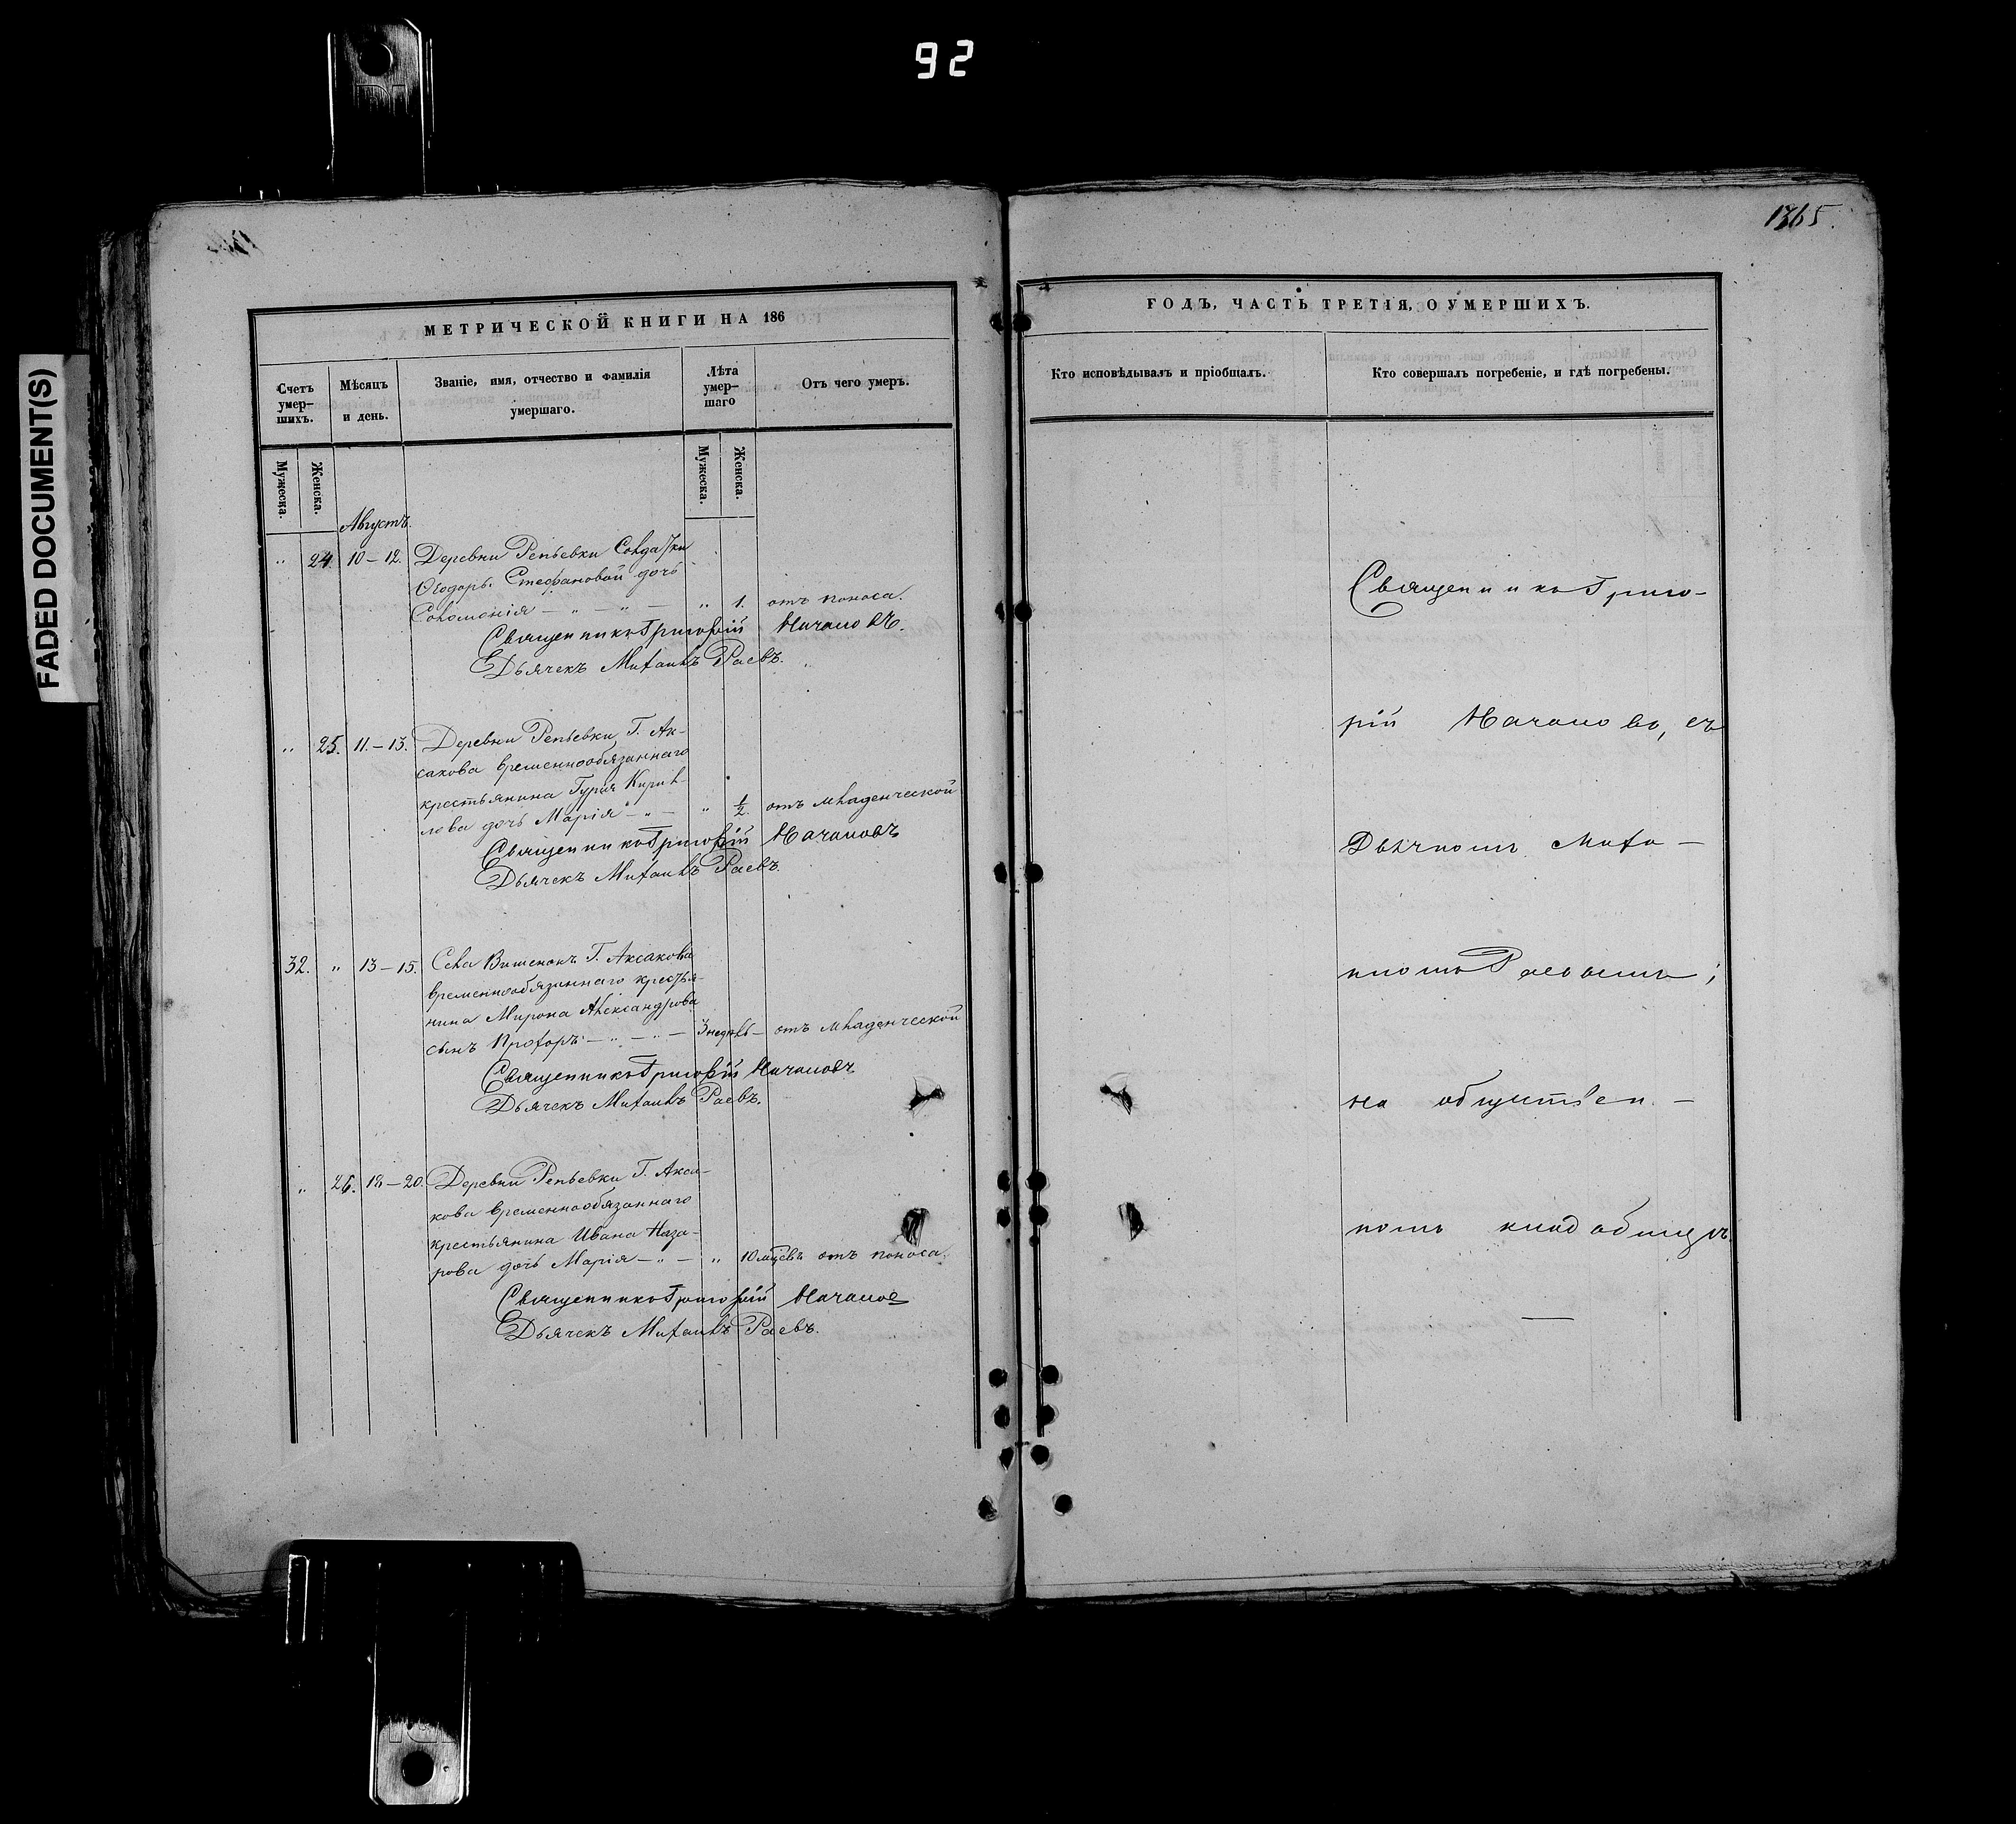 92
FADED DOCUMENT(S)
1365.
МЕТРИЧЕСКОЙ КНИГИ НА 186
Счетъ умер-
шихъ.
Мѣсяцъ
и день.
Званіе, имя, отчество и фамилія
умершаго.
Лѣта
умер-
шаго
Отъ чего умеръ.
Мужеска.
Женска.
Мужеска.
Женска.
Августъ.
" 24. 10–12. Деревни Репьевки Солдатки
Ѳеодоры Стефановой дочь
Соломонія — " — " — " 1. отъ поноса.
Священникъ Григорій
Дьячекъ Михаилъ Раевъ.
" 25. 11.–13. Деревни Репьевки Г. Ак-
сакова временнообязаннаго
крестьянина Гурія Кирил-
лова дочь Марія — " — " 1/2. отъ младенческой
Священникъ Григорій
Дьячекъ Михаилъ Раевъ.
32. " 13–15. Села Вишенокъ Г. Аксакова
временнообязаннаго крестья-
нина Мирона Александрова
сынъ Прохоръ — " — " — 3 недѣль — отъ младенческой
Священникъ Григорій
Дьячекъ Михаилъ Раевъ.
" 26. 18–20. Деревни Репьевки Г. Акса-
кова временнообязаннаго
крестьянина Ивана Наза-
рова дочь Марія — " — " 10 мцевъ отъ поноса.
Священникъ Григорій
Дьячекъ Михаилъ Раевъ.
ГОДЪ, ЧАСТЬ ТРЕТІЯ, О УМЕРШИХЪ.
Кто исповѣдывалъ и пріобщалъ.
Кто совершалъ погребеніе, и гдѣ погребены.
Священникъ Григо-
рій съ
Дьячкомъ Миха-
иломъ Раевымъ,
на обществен-
номъ кладбищѣ